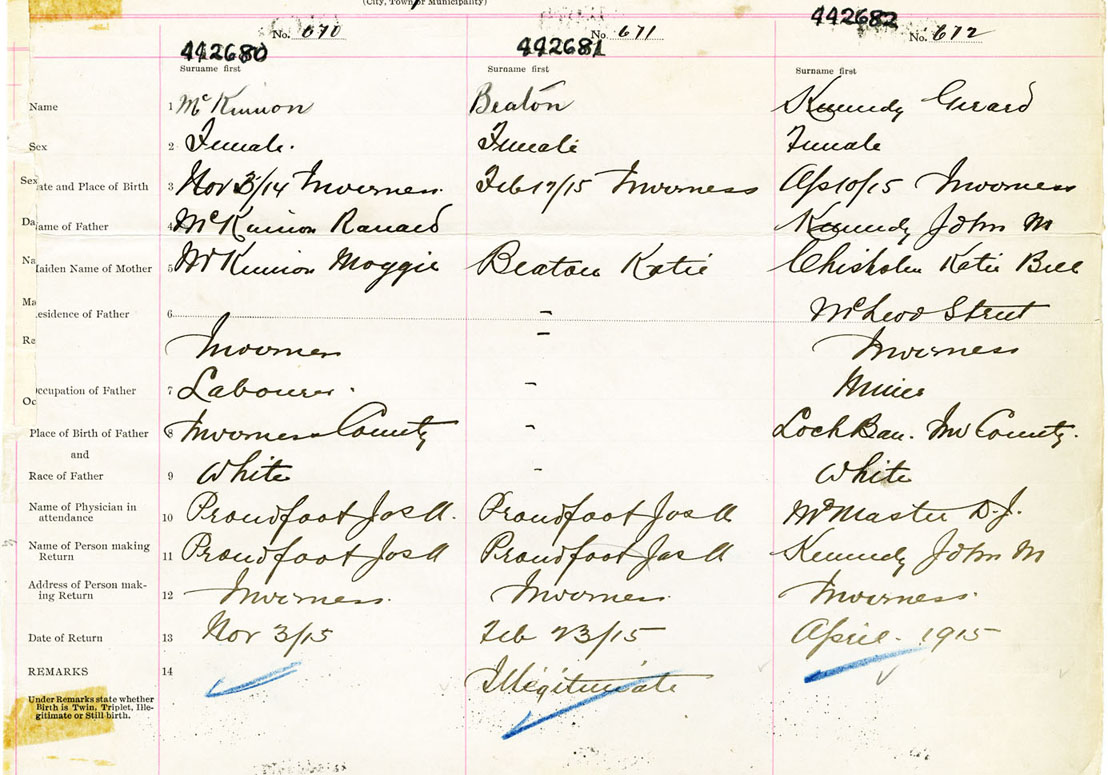 (City, Town or Municipality)
No. 670 No. 671 No. 672
442680 442681 442682
Surname first Surname first Surname first
Name 1 McKinnon Beaton Kennedy Gerard
Sex 2 Female. Female Female
Sex ate and Place of Birth 3 Nov 3/14 Inverness. Feb 17/15 Inverness Ap 10/15 Inverness
Da ame of Father 4 McKinnon Ranald Kennedy John M
Na aiden Name of Mother 5 McKinnon Maggie Beaton Katie Chisholm Katie Bell
Ma esidence of Father 6 - McLeod Street
Re Inverness - Inverness
Occupation of Father 7 Labourer. - Miner
Oc
Place of Birth of Father 8 Inverness County - Loch Ban. Inv County.
and
Race of Father 9 White - White
Name of Physician in
attendance 10 Proudfoot Jos A. Proudfoot Jos A McMaster D.J.
Name of Person making
Return 11 Proudfoot Jos A Proudfoot Jas A Kennedy John M
Address of Person mak-
ing Return 12 Inverness. Inverness. Inverness.
Date of Return 13 Nov 3/15 Feb 23/15 April. 1915
REMARKS 14 Illegitimate
Under Remarks state whether
Birth is Twin, Triplet, Ille-
gitimate or Still birth.